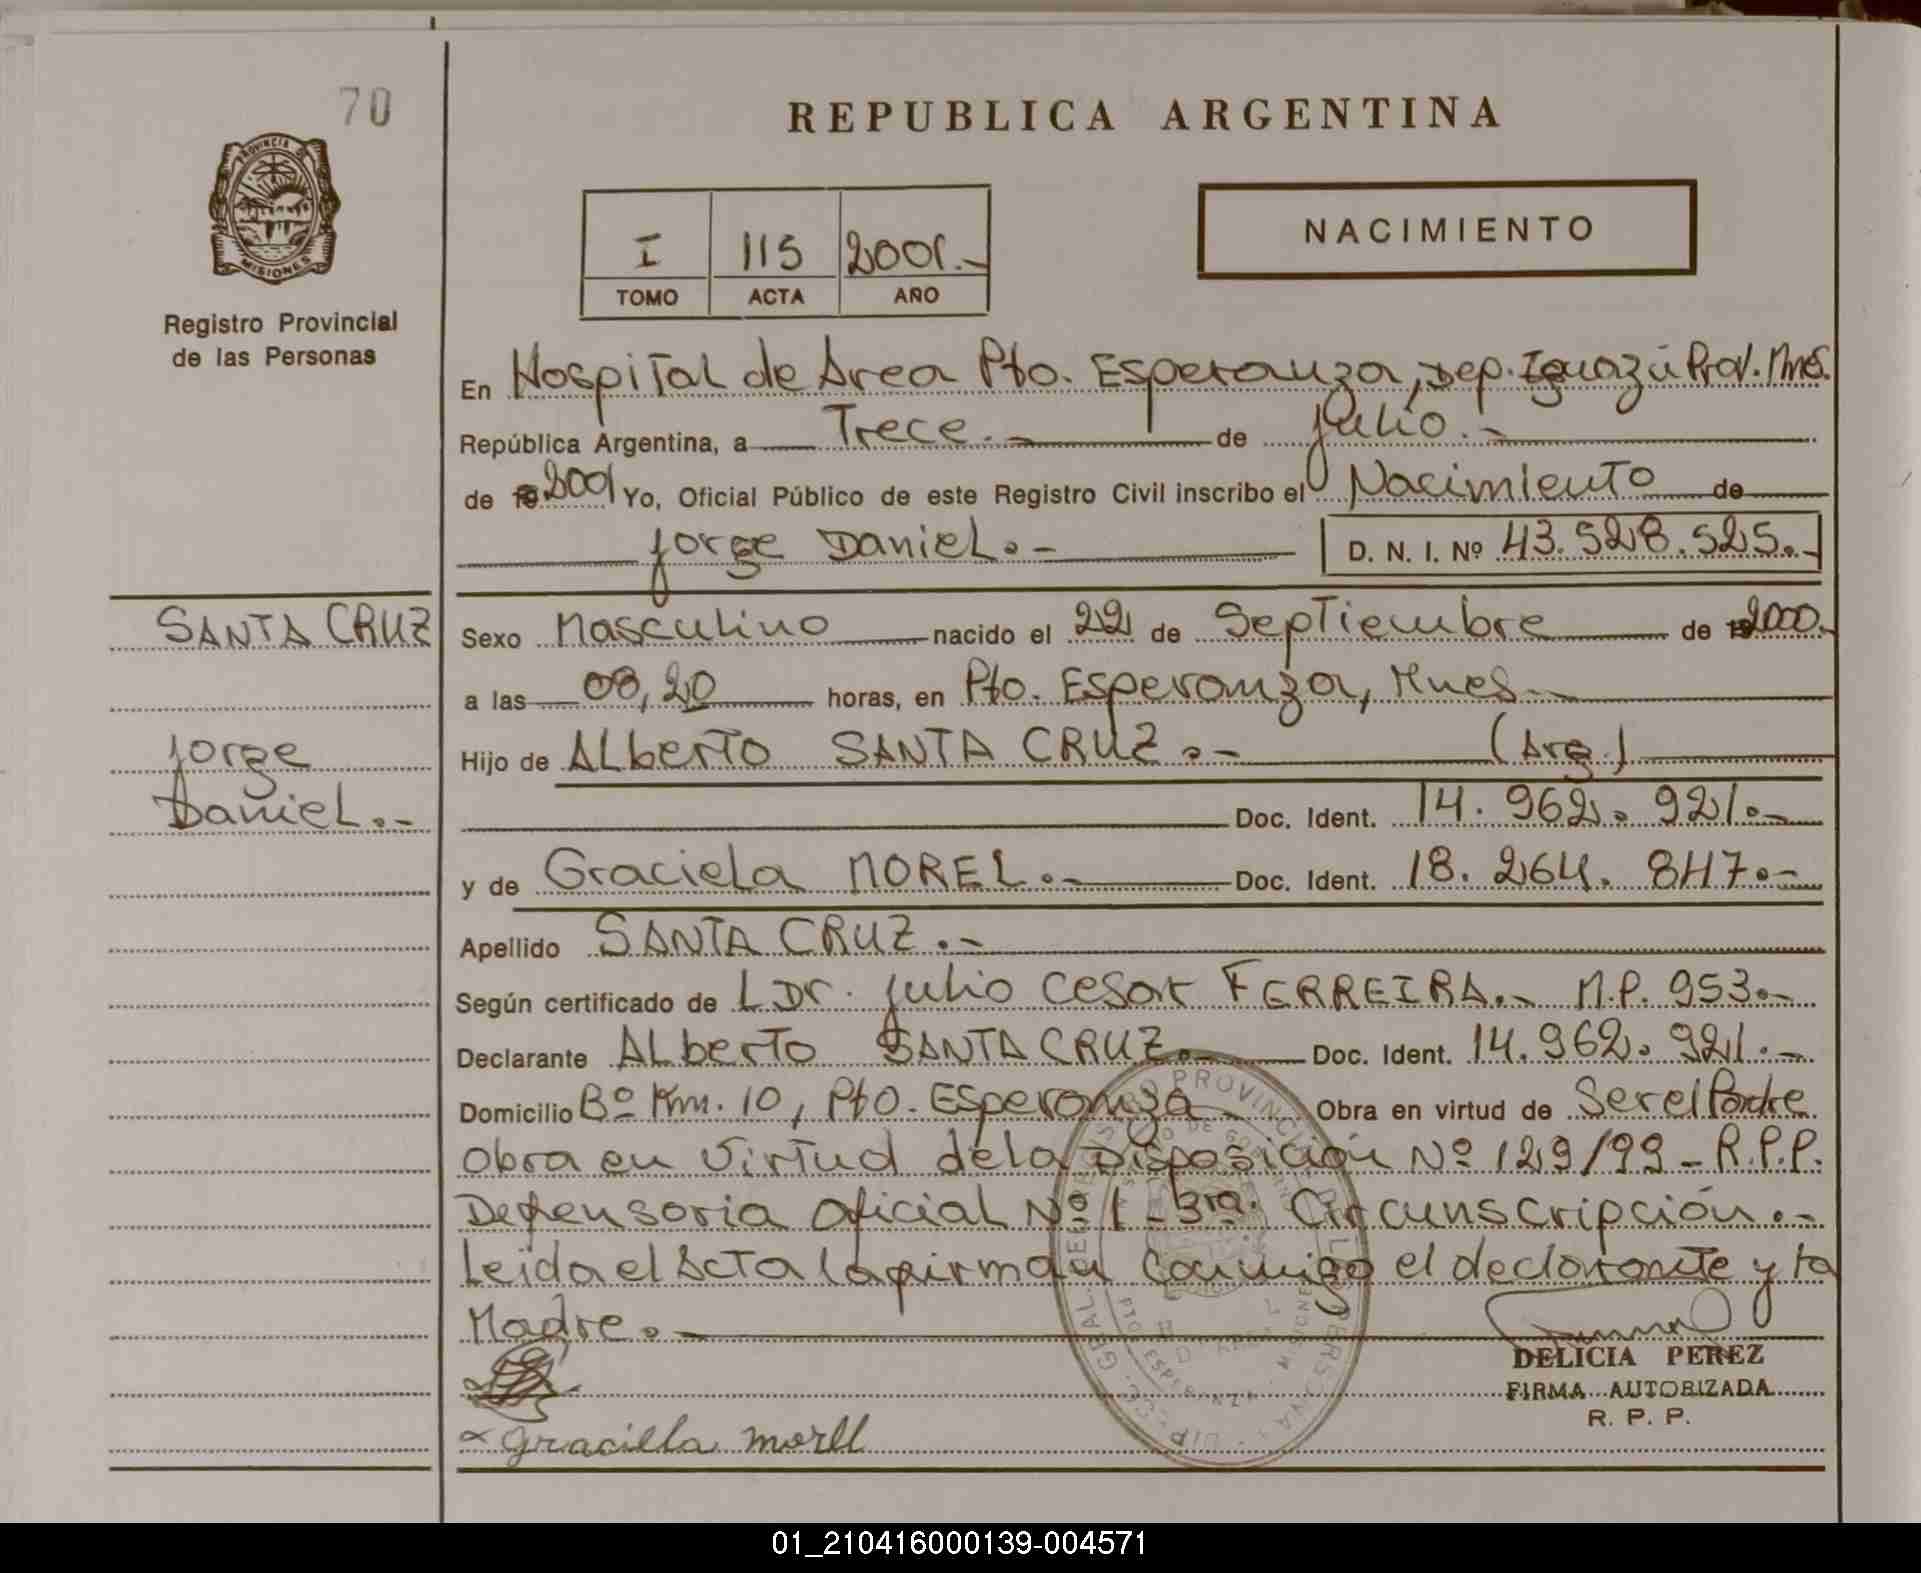 70
REPUBLICA ARGENTINA
PROVINCIA DE
MISIONES
Registro Provincial
de las Personas
I 115 2001.-
TOMO ACTA AÑO
NACIMIENTO
En Hospital de Area Pto. Esperanza, Dep. Iguazú Prov. Mnes.
República Argentina, a Trece.- de julio.-
de 2001 Yo, Oficial Público de este Registro Civil inscribo el Nacimiento de
Jorge Daniel.-
D. N. I. Nº 43.528.525.-
SANTA CRUZ
Jorge
Daniel.-
Sexo Masculino nacido el 22 de Septiembre de 2000.-
a las 08,20 horas, en Pto. Esperanza, Mnes.-
Hijo de Alberto SANTA CRUZ.- (Arg.)
Doc. Ident. 14.962.921.-
y de Graciela MOREL.- Doc. Ident. 18.264.847.-
Apellido SANTA CRUZ.-
Según certificado de L Dr. Julio Cesar FERREIRA.- M.P. 953.-
Declarante Alberto SANTA CRUZ.- Doc. Ident. 14.962.921.-
Domicilio Bº Km. 10, Pto. Esperanza Obra en virtud de Ser el Padre
Obra en Virtud de la Disposición Nº 129/99 - R.P.P.
Defensoria Oficial Nº 1 - 3ra. Circunscripción.-
Leida el Acta la firman Conmigo el declarante y la
Madre.-
DELICIA PEREZ
FIRMA AUTORIZADA
R. P. P.
gracilla morll
01_210416000139-004571